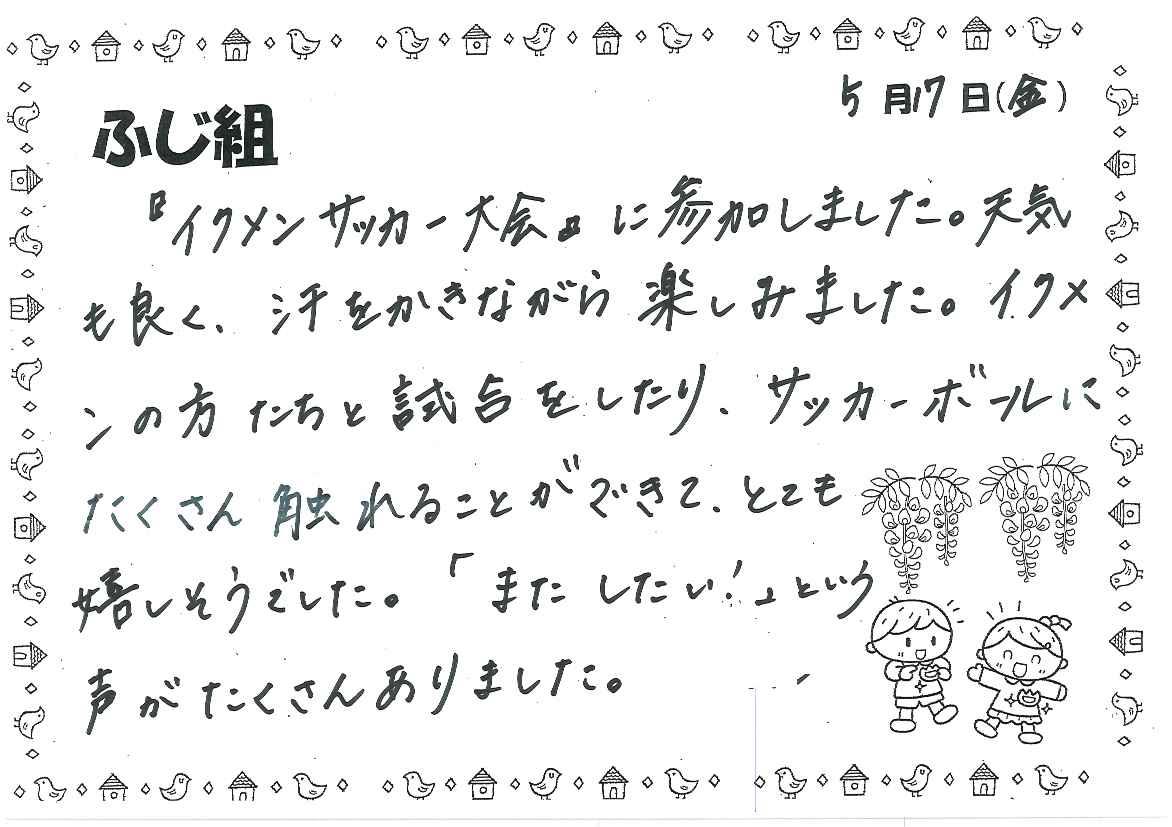 5月17日(金)
ふじ組
『イクメンサッカー大会』に参加しました。天気
も良く、汗をかきながら楽しみました。イクメ
ンの方たちと試合をしたり、サッカーボールに
たくさん触れることができて、とても
嬉しそうでした。「またしたい!」という
声がたくさんありました。